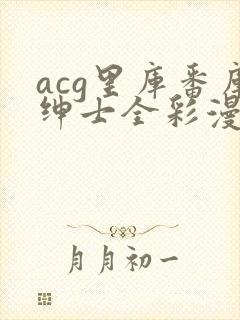 acg里库番库
绅士全彩漫
月月初一